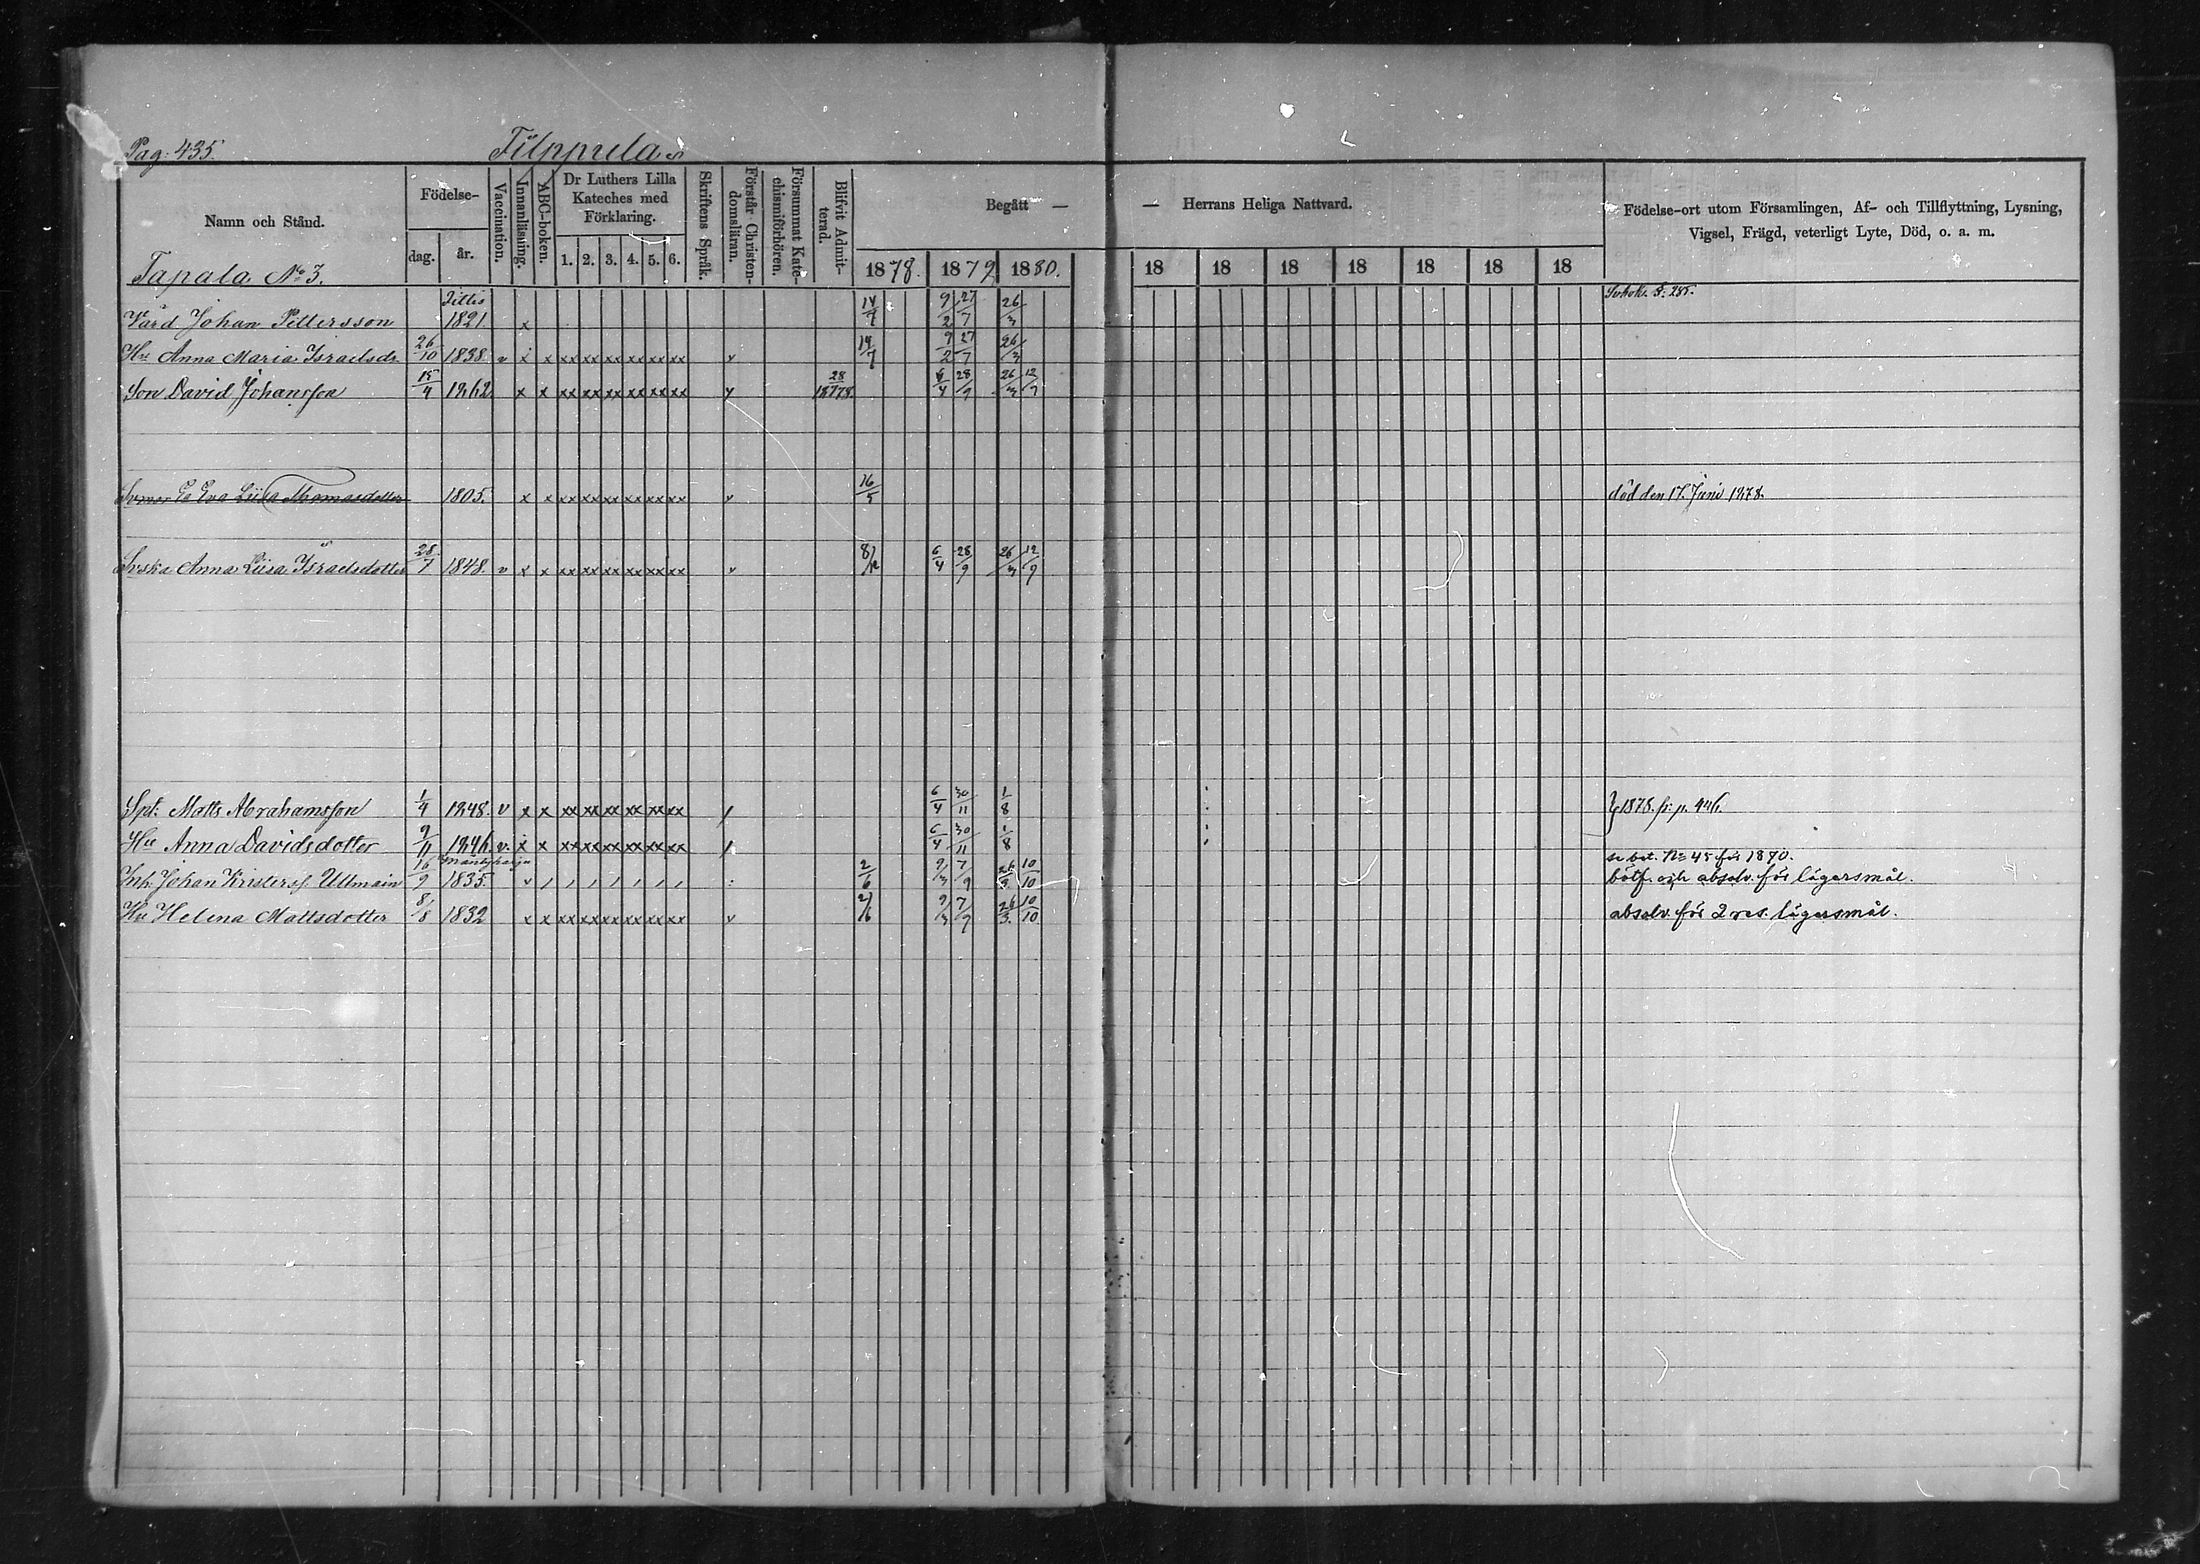 Pag: 435. Filppula
Namn och Stånd. Födelse- dag. år. Vaccination. Innanläsning. ABC-boken. Dr Luthers Lilla Kateches med Förklaring. 1. 2. 3. 4. 5. 6. Skriftens Språk. Förstår Christendomsläran. Försummat Katechismiförhören. Blifvit Admitterad. Begått — — Herrans Heliga Nattvard. Födelse-ort utom Församlingen, Af- och Tillflyttning, Lysning, Vigsel, Frägd, veterligt Lyte, Död, o. a. m.
Tapala No 3. 1878. 1879 1880. 18 18 18 18 18 18 18
Johan Pettersson 1821. x 14/7 9/2 27/7 26/3
Hu Anna Maria Israelsdr 26/10 1838. v x x xx xx xx xx xx xx v 14/7 9/2 27/7 26/3
Son David Johansson 15/4 1862 x x xx xx xx xx xx xx v 28/9 1878 6/4 28/9 26/3 12/9
Eva Liisa Thomasdotter 1805. x x xx xx xx xx xx xx v 16/5 död den 17. Juni 1878.
Anna Liisa Israelsdotter 28/7 1848. v x x xx xx xx xx xx xx v 6/4 28/9 26/3 12/9
Matts Abrahamsson 1/4 1848. v x x xx xx xx xx xx xx 6/4 30/11 1/8 1878. fr: p.
Hu Anna Davidsdotter 9/11 1846. v. x x xx xx xx xx xx xx 6/4 30/11 1/8
Mäntyharju se bet. No 45 för 1870.
Inh. Johan Kristerss. Ullmain 16/9 1835. 2/6 9/3 7/9 26/3 10/10 bötf. och absolv. för lägersmål.
Hu Helena Mattsdotter 8/8 1832 x x xx xx xx xx xx xx v 2/6 9/3 7/9 26/3. 10/10. absolv. för 2 res. lägersmål.